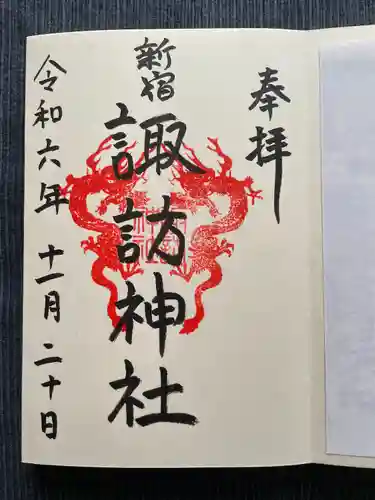 奉拝
新宿
諏訪神社
令和六年 十一月 二十日